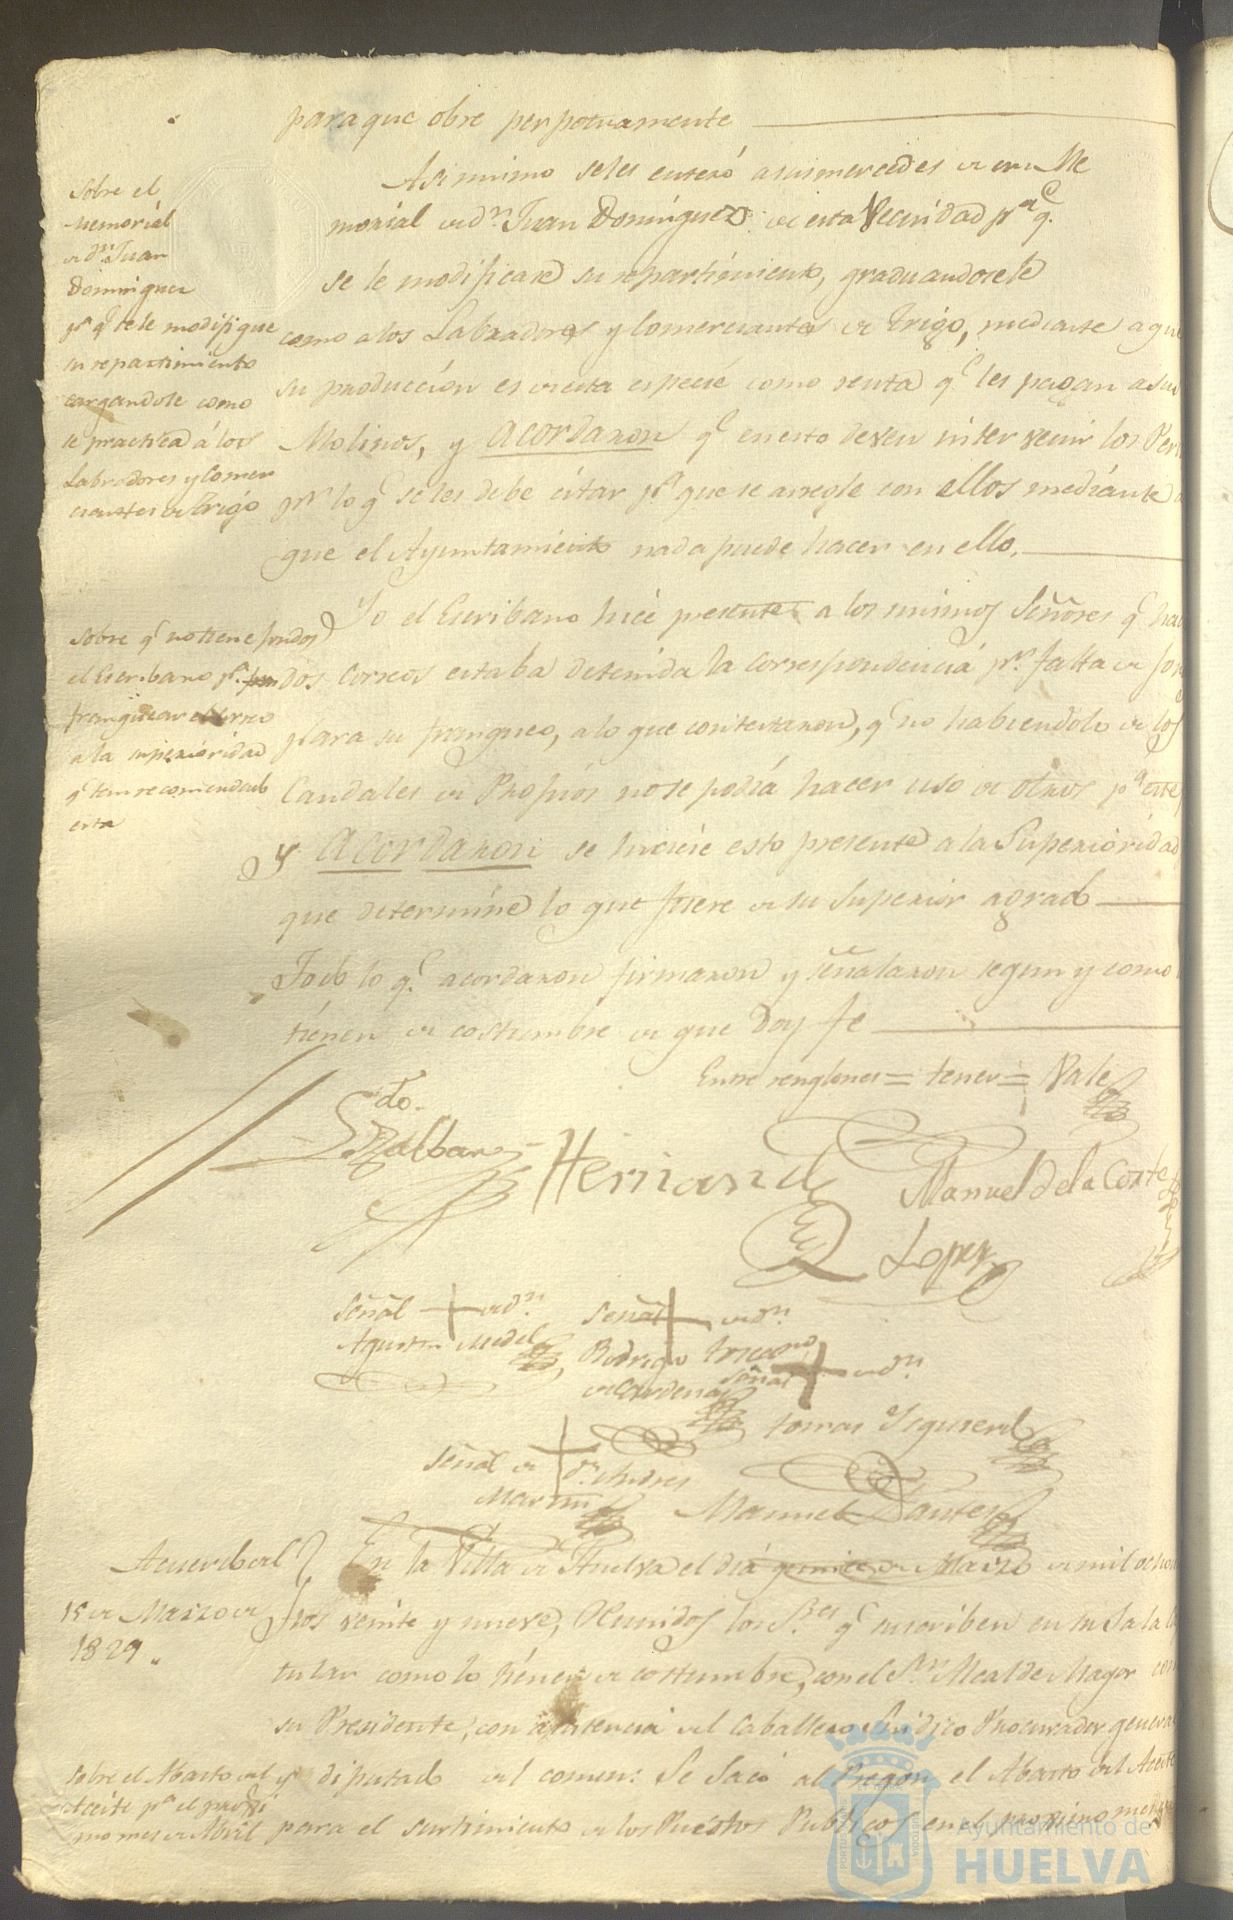 para que obre perpetuamente
Asimismo se les enteró a sus mercedes de un Me
morial de dn. Juan Dominguez de esta Vecindad pa. q.
se le modificase su repartimiento, graduandosele
como a los Labradores y Comerciantes de Trigo, mediante a que
su producción es de esta especie como renta q. les pagan a sus
Molinos, y Acordaron q. en esto deven intervenir los
pr. lo q. se les debe citar pa. que se arregle con ellos mediante a
que el Ayuntamiento nada puede hacer en ello.
Sobre el
Memorial
de dn. Juan
Dominguez
pa. q. se le modifique
su repartimiento
cargandole como
se practica á los
Labradores y Comer
ciantes de Trigo
Yo el Escribano hice presente a los mismos Señores q. hac
dos Correos estaba detenida la correspondencia pr. falta de fon
para su franqueo, a lo que contestaron, q. no habiendolo de los
Caudales de Propios no se podia hacer uso de otros pa. este
y Acordaron se hiciese esto presente a la Superioridad
que determine lo que fuere de su Superior agrado
Sobre q. no tiene fondos
el Escribano pa.
franquear el correo
a la superioridad
q. tiene recomendado
esta
Todo lo q. acordaron firmaron y señalaron segun y como
tienen de costumbre de que Doy fe
Entre renglones = tener = Vale
Ldo.
Hernand
Manuel de la Corte
Lopez
Señal de dn.
Agustin Medel
Señal de dn.
Rodrigo
de Cardenas
Señal de dn.
tomas Izquierdo
Señal de dn. Andres
Martin
Manuel
Acuerdo del
15 de Marzo de
1829.
En la Villa de Huelva el dia quince de Marzo de mil ochoc
tos veinte y nueve; Reunidos los Sres. q. suscriben en su Sala Ca
tular como lo tienen de costumbre, con el Sr. Alcalde Mayor com
su Presidente, con asistencia del Caballero Sindico Procurador general
y diputado del comun: Se Sacó al Pregon el Abasto del Aceite
para el surtimiento de los Puestos Publicos en el proximo mes
Sobre el Abasto del
Aceite pa. el proxi
mo mes de Abril
Ayuntamiento de
HUELVA